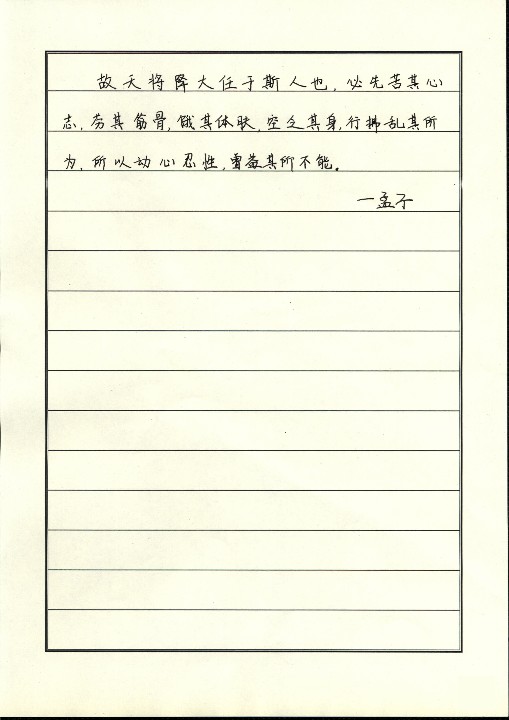 故天将降大任于斯人也,必先苦其心
志,劳其筋骨,饿其体肤,空乏其身,行拂乱其所
为,所以动心忍性,曾益其所不能。
—孟子